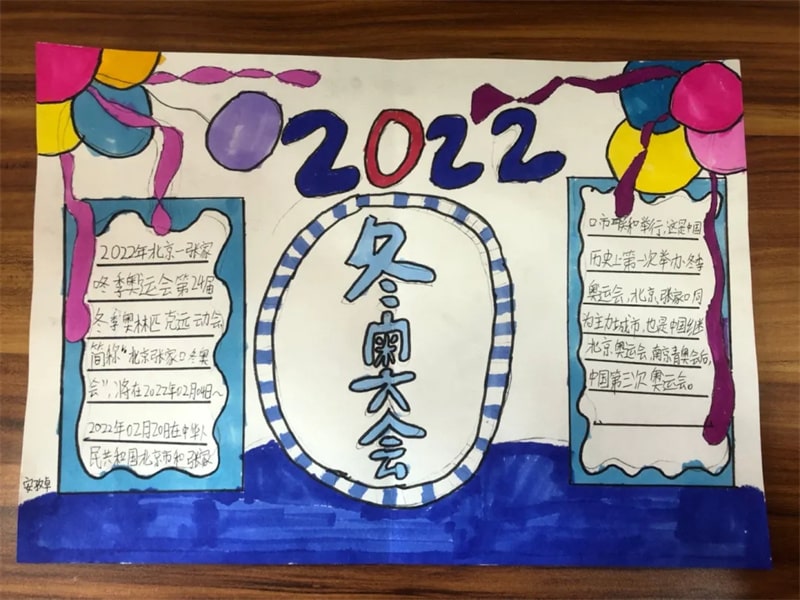 2022
冬奥大会
2022年北京一张家
口冬季奥运会第24届
冬季奥林匹克运动会,
简称“北京张家口冬奥
会”,将在2022年02月04日~
2022年02月20日在中华人
民共和国北京市和张家
口市联和举行,这是中国
历史上第一次举办冬季
奥运会,北京、张家口同
为主办城市,也是中国继
北京奥运会,南京青奥会后,
中国第三次奥运会。